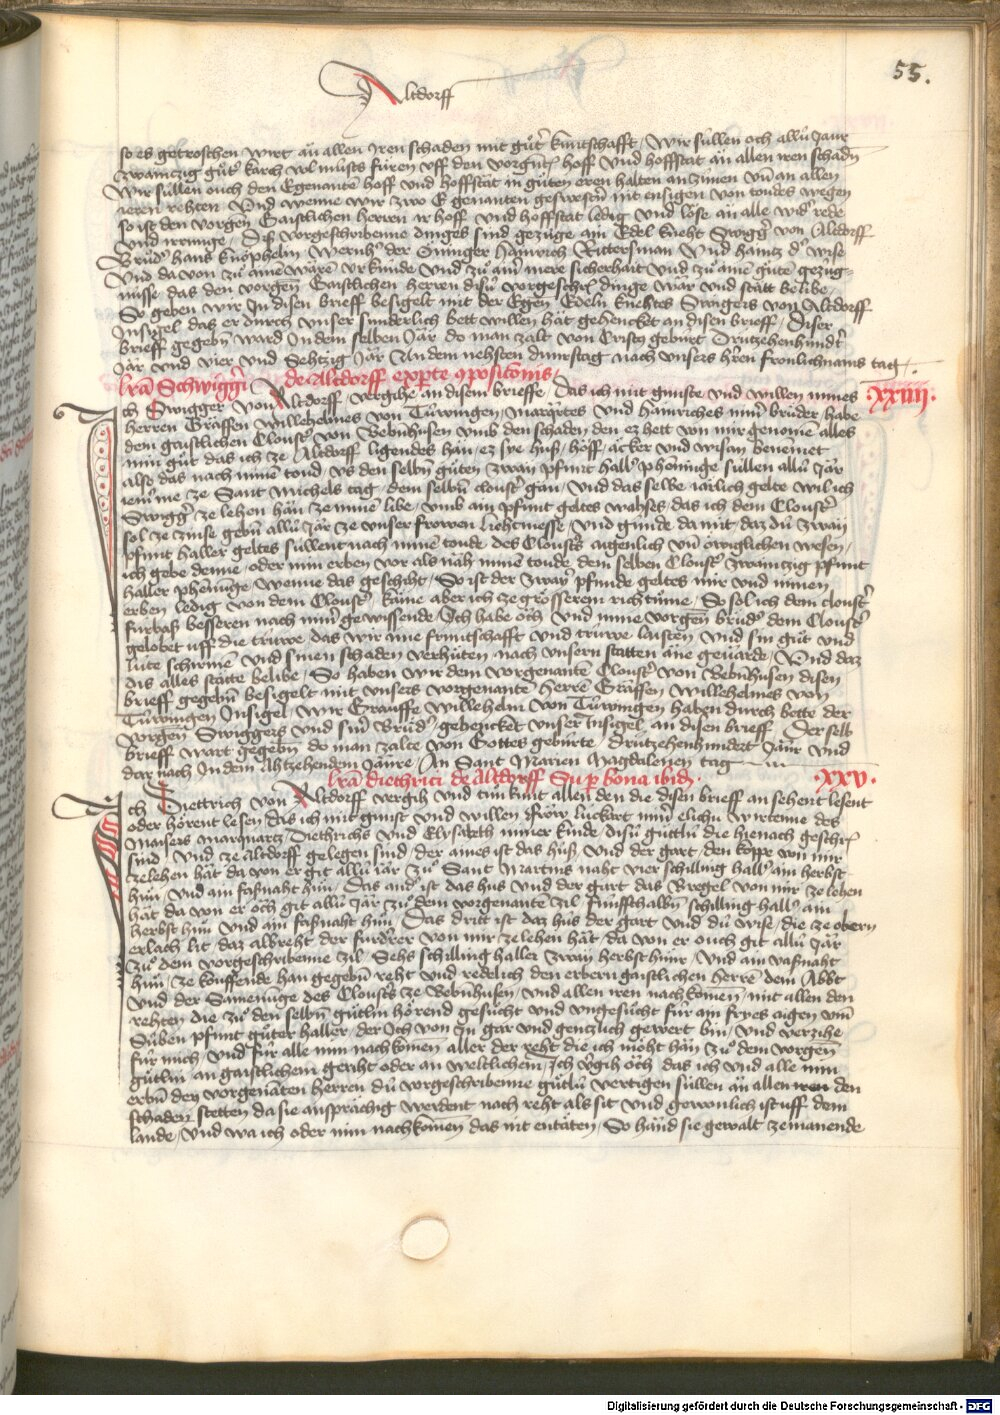 55.
Altdorff
so es getroschen wirt än allen iren schaden mit gůter kuntschafft / wir süllen och allü Jaur
zwaintzig gůter karch vol mists füren vff den vorgnten hoff vnd hoffstat än allen iren schaden
wir süllen ouch den Egenante hoff vnd hoffstat in gůten eren halten an zinnen vn an allen
iren rehten Vnd wenne wir zwo Egenanten geswestern nit ensigen von todes wegen
so ist den vorgen Gaistlichen herren ir hoff vnd hoffstat ledig vnd löse än alle wider rede
vnd irrunge / Diß vorgeschribenne dinges sind gezüge ain Edel kneht Swigger von Altdorff
Brůder hans knöpheln Wernher der Hainrich Rittersman Vnd haintz der wise
Vnd da von zů aine waren vrkunde vnd zů ainer mere sicherhait vnd zů aine gůte gezug-
nüsse das den vorgen Gaistlichen herren disü vorgeschriben dinge war vnd stätt belibe /
So geben wir In disen brieff besigelt mit der Egen Edeln knehtes Swigers von Altdorff
Insigel das er durch vnser sunderlich bett willen hät gehencket an disen brieff / Diser
brieff gegeben ward In dem selben Jär do man zalt von Cristz geburt Drützehenhundert
Jar vnd vier vnd Sehtzig Jar An dem nehsten dunrstag nach vnsers hren fronlichnams tag .
lra Schwiggeri de Altdorff ex parte opositonis / .xxiiii.
Ich Swigger von Altdorff vergihe an disem brieffe / Das ich mit gunste vnd willen mines
herren Gräffen willehelmes von Tüwingen / marqrtes vnd hainriches miner brüder habe
dem gaistlichen Closter von Bebenhusen vmb den schaden den ez hett von mir genomen alles
min gůt das ich ze Altdorff ligendes hän / ez sye huß / höff / äcker vnd wisan benemet
also das nach minem toud vs den selben gůten zway pfunt haller phenninge süllen allü Jär
iemer me ze Sant Michels tag / dem selben closter gan / vnd das selbe iärlich gelte wil ich
Swigger ze lehen hän ze mine libe / vmb ain pfunt geltes wahses / das ich dem Closter
sol ze zinse geben allü Jar ze vnser frowen liehtmesse / vnd gunde da mit / daz dü zway
pfunt haller geltes süllent nach minem toude des Closters aigenlich vn öwiglichen wesen /
ich gebe denne / oder min erben vor als näh minem toude dem selben Closter zwaintzig pfunt
haller pheninge / wenne das geschiht / So ist der zwayer pfunde geltes mir vnd minen
erben ledig von dem Closter / käme aber ich ze grösserem richtume / So sol ich dem closter
fürbaß besseren nach miner gewissende / Ich habe öch vnd mine vorgen brüder dem Closter
gelobet vff die trüwe das wir ime fruntschafft vnd trüwe laisten / vnd sin gůt vnd
lüte schirmen vnd sinen schaden verhüten / nach vnsern statten äne geuärde / Vnd daz
dis alles stätte belibe / So haben wir dem vorgenante Closter von Bebenhusen disen
brieff gegeben besigelt mit vnsers vorgenante herre Gräffen willehelmes von
Tüwingen Insigel / wir Grauffe willehelm von Tüwingen haben durch bette der
vorgen Swiggers vnd siner Brüder / gehencket vnser Insigel an disen brieff / Der selb
brieff wart gegeben do man zalte von Gottes gebürte / Drützehenhundert Jäur vnd
dar nach In dem Ahtzehendem Jäure / An Sant Marien Magdalenen tag
lra diethrici de Altdorff Super bona ibidem . .xxv.
Ich Diettrich von Altdorff vergih vnd tůn kunt allen den die disen brieff an sehent lesent
oder hörent lesen das ich mit gunst vnd willen fröw luckart miner elichun wirtenne des
maisers marquartz Diethrichs vnd Elysabeth miner kinde / disü gütlü die hienach geschriben
sind / vnd ze Altdorff gelegen sind / der aines ist das huß / vnd der gart / den koppe von mir
ze lehen hät da von er git allü iar zů Sant Martins naht vier schilling haller ain herbst
hůn / vnd ain faßnaht hůn / Das ander ist das hus vnd der gart das Bregel von mir ze lehen
hät da von er öch git allü Jär zů dem vorgenante zil / fünffthalben schilling haller ain
herbst hůn vnd ain faßnaht hůn / Das dritt ist daz hus der gart vnd dü wise / die ze obern
erlach lit / daz albreht der furdrer von mir ze lehen hät / da von er ouch git allü Jär
zů dem vorgeschribenne zil / Sehs schilling haller zway herbst hůnr / vnd ain vaßnaht
hůn / ze kouffende han gegeben reht vnd redelich den erbern gaistlichen herre dem Abbt
vnd der Samenunge des Closters ze Bebenhusen / vnd allen iren nachkomen / mit allen den
rehten die zů den selben gütlin hörend gesucht vnd vngesucht für ain fryes aigen vm
Süben pfunt gůter haller / der Ich von In gar vnd gentzlich gewert bin / vnd verzihe
für mich / vnd für alle min nachkomen aller der reht die ich möht hän zů dem vorgen
gütlin an gaistlichem geriht oder an weltlichem / Ich vergih öch das ich vnd alle min
erben den vorgenanten herren dü vorgeschribenne gütlü vertigen süllen än allen iren den
schaden stetten da sie ansprächig werdent nach reht als sit vnd gewonlich ist vff dem
lande / vnd wa ich oder min nachkomen das nit entäten / So händ sie gewalt ze manende
Digitalisierung gefördert durch die Deutsche Forschungsgemeinschaft - DFG